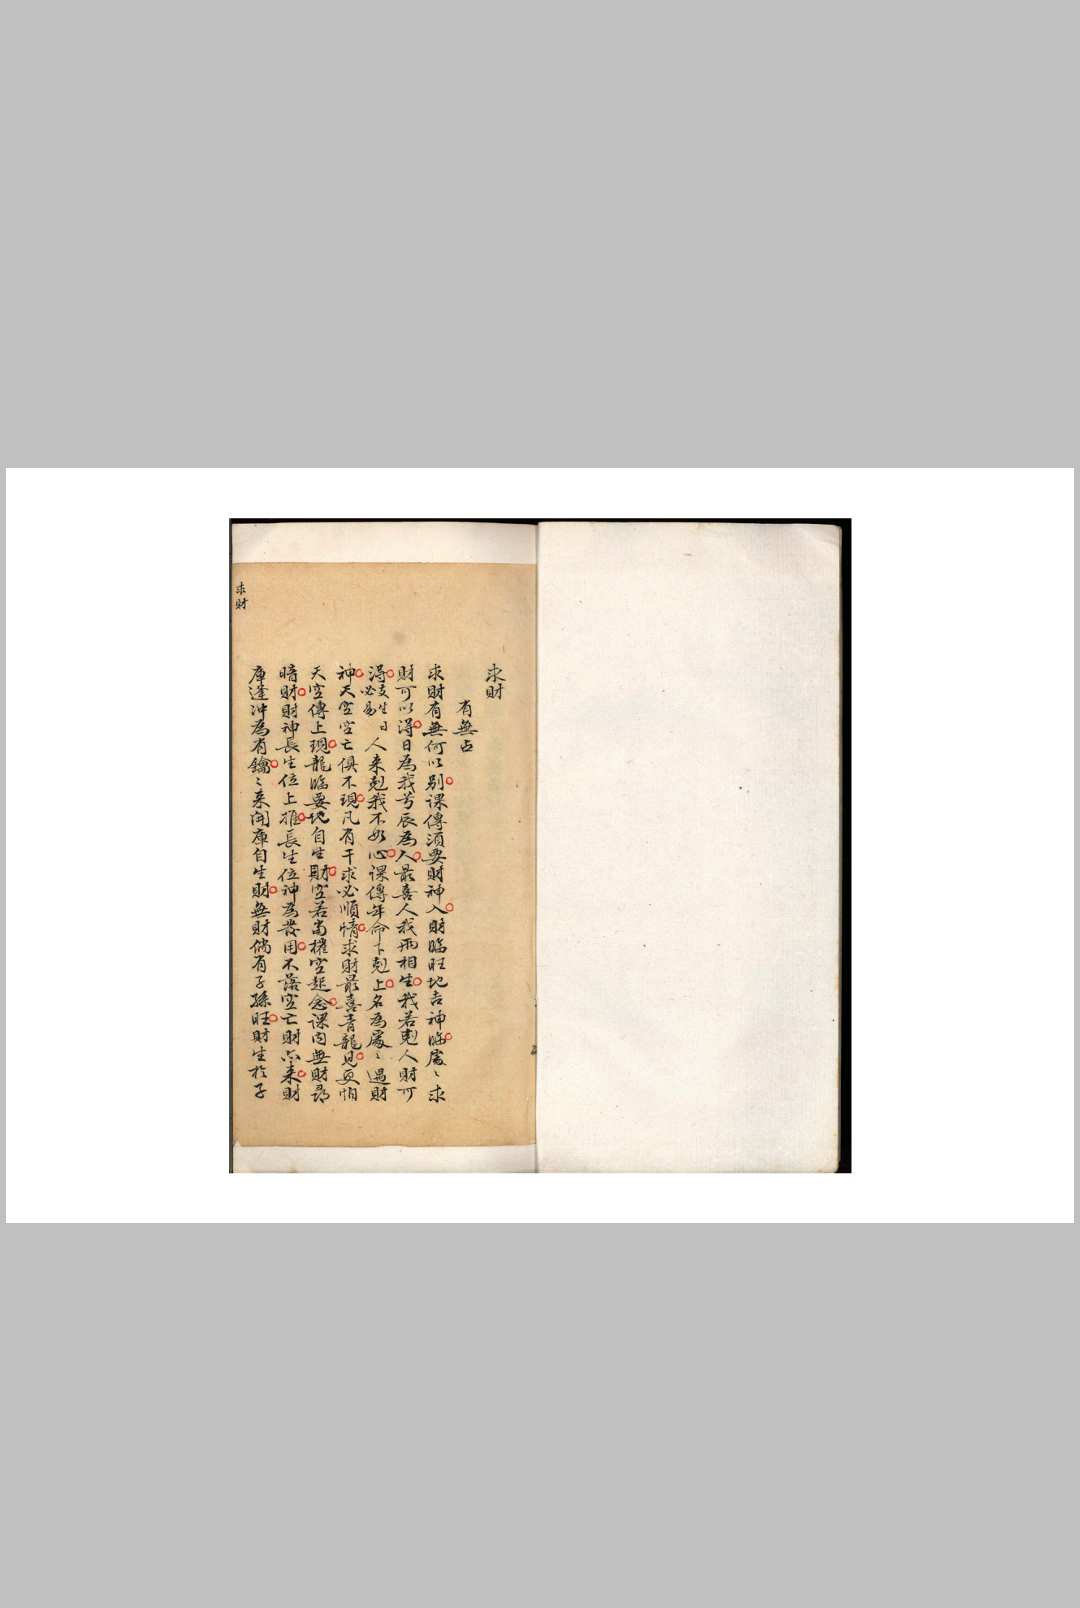 求財
有無占
求財有無何以別課傳須要財神入財臨旺地吉神臨處〻求
財可以得日為我兮辰為人最喜人我兩相生我若剋人財可
得支生日必易人来剋我不如心課傳年命下剋上名為處〻遇財
神天空空亡俱不現凡有干求必順情求財最喜青龍見更怕
天空傳上現龍臨要地自生財空若當權空起念課內無財尋
暗財財神長生位上推長生位神為發用不落空亡財亦来財
庫逢冲為有鑰〻来開庫自生財無財倘有子孫旺財生於子
求財